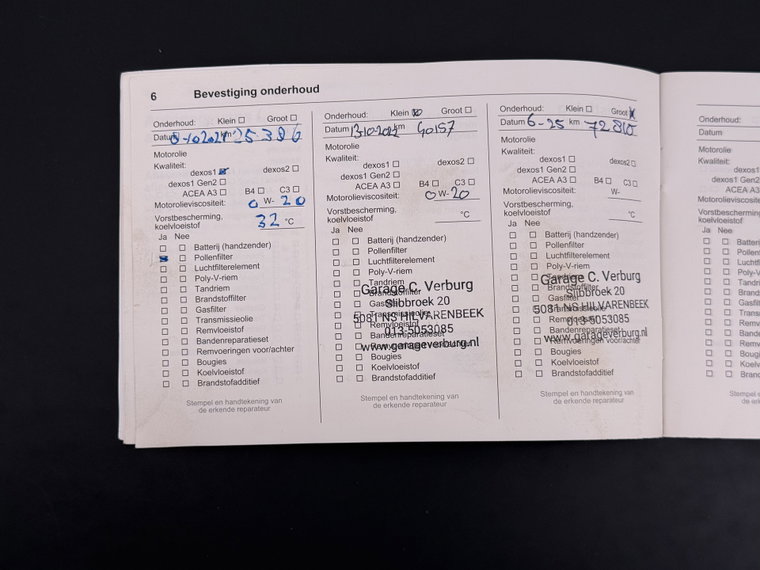 6 Bevestiging onderhoud
Onderhoud: Klein Groot
Datum km 25386
Motorolie
Kwaliteit:
dexos1 dexos2
dexos1 Gen2
ACEA A3 B4 C3
Motorolieviscositeit: 0 W- 20
Vorstbescherming,
koelvloeistof 32 °C
Ja Nee
Batterij (handzender)
Pollenfilter
Luchtfilterelement
Poly-V-riem
Tandriem
Brandstoffilter
Gasfilter
Transmissieolie
Remvloeistof
Bandenreparatieset
Remvoeringen voor/achter
Bougies
Koelvloeistof
Brandstofadditief
Stempel en handtekening van
de erkende reparateur
Onderhoud: Klein Groot
Datum 13-10-2022 km 40157
Motorolie
Kwaliteit:
dexos1 dexos2
dexos1 Gen2
ACEA A3 B4 C3
Motorolieviscositeit: 0 W- 20
Vorstbescherming,
koelvloeistof °C
Ja Nee
Batterij (handzender)
Pollenfilter
Luchtfilterelement
Poly-V-riem
Tandriem
Garage C. Verburg
Brandstoffilter
Slibbroek 20
Gasfilter
Transmissieolie
5081 NS HILVARENBEEK
Remvloeistof
013-5053085
Bandenreparatieset
www.garageverburg.nl
Bougies
Koelvloeistof
Brandstofadditief
Stempel en handtekening van
de erkende reparateur
Onderhoud: Klein Groot
Datum 6-25 km 72810
Motorolie
Kwaliteit:
dexos1 dexos2
dexos1 Gen2
ACEA A3 B4 C3
Motorolieviscositeit: W-
Vorstbescherming,
koelvloeistof °C
Ja Nee
Batterij (handzender)
Pollenfilter
Luchtfilterelement
Poly-V-riem
Tandriem
Garage C. Verburg
Brandstoffilter
Slibbroek 20
Gasfilter
5081 NS HILVARENBEEK
Remvloeistof
013-5053085
Bandenreparatieset
www.garageverburg.nl
Remvoeringen voor/achter
Bougies
Koelvloeistof
Brandstofadditief
Stempel en handtekening van
de erkende reparateur
Onderhoud:
Datum
Motorolie
Kwaliteit:
dexos1
dexos1 Gen2
ACEA A3
Motorolieviscositeit
Vorstbescherming,
koelvloeistof
Ja Nee